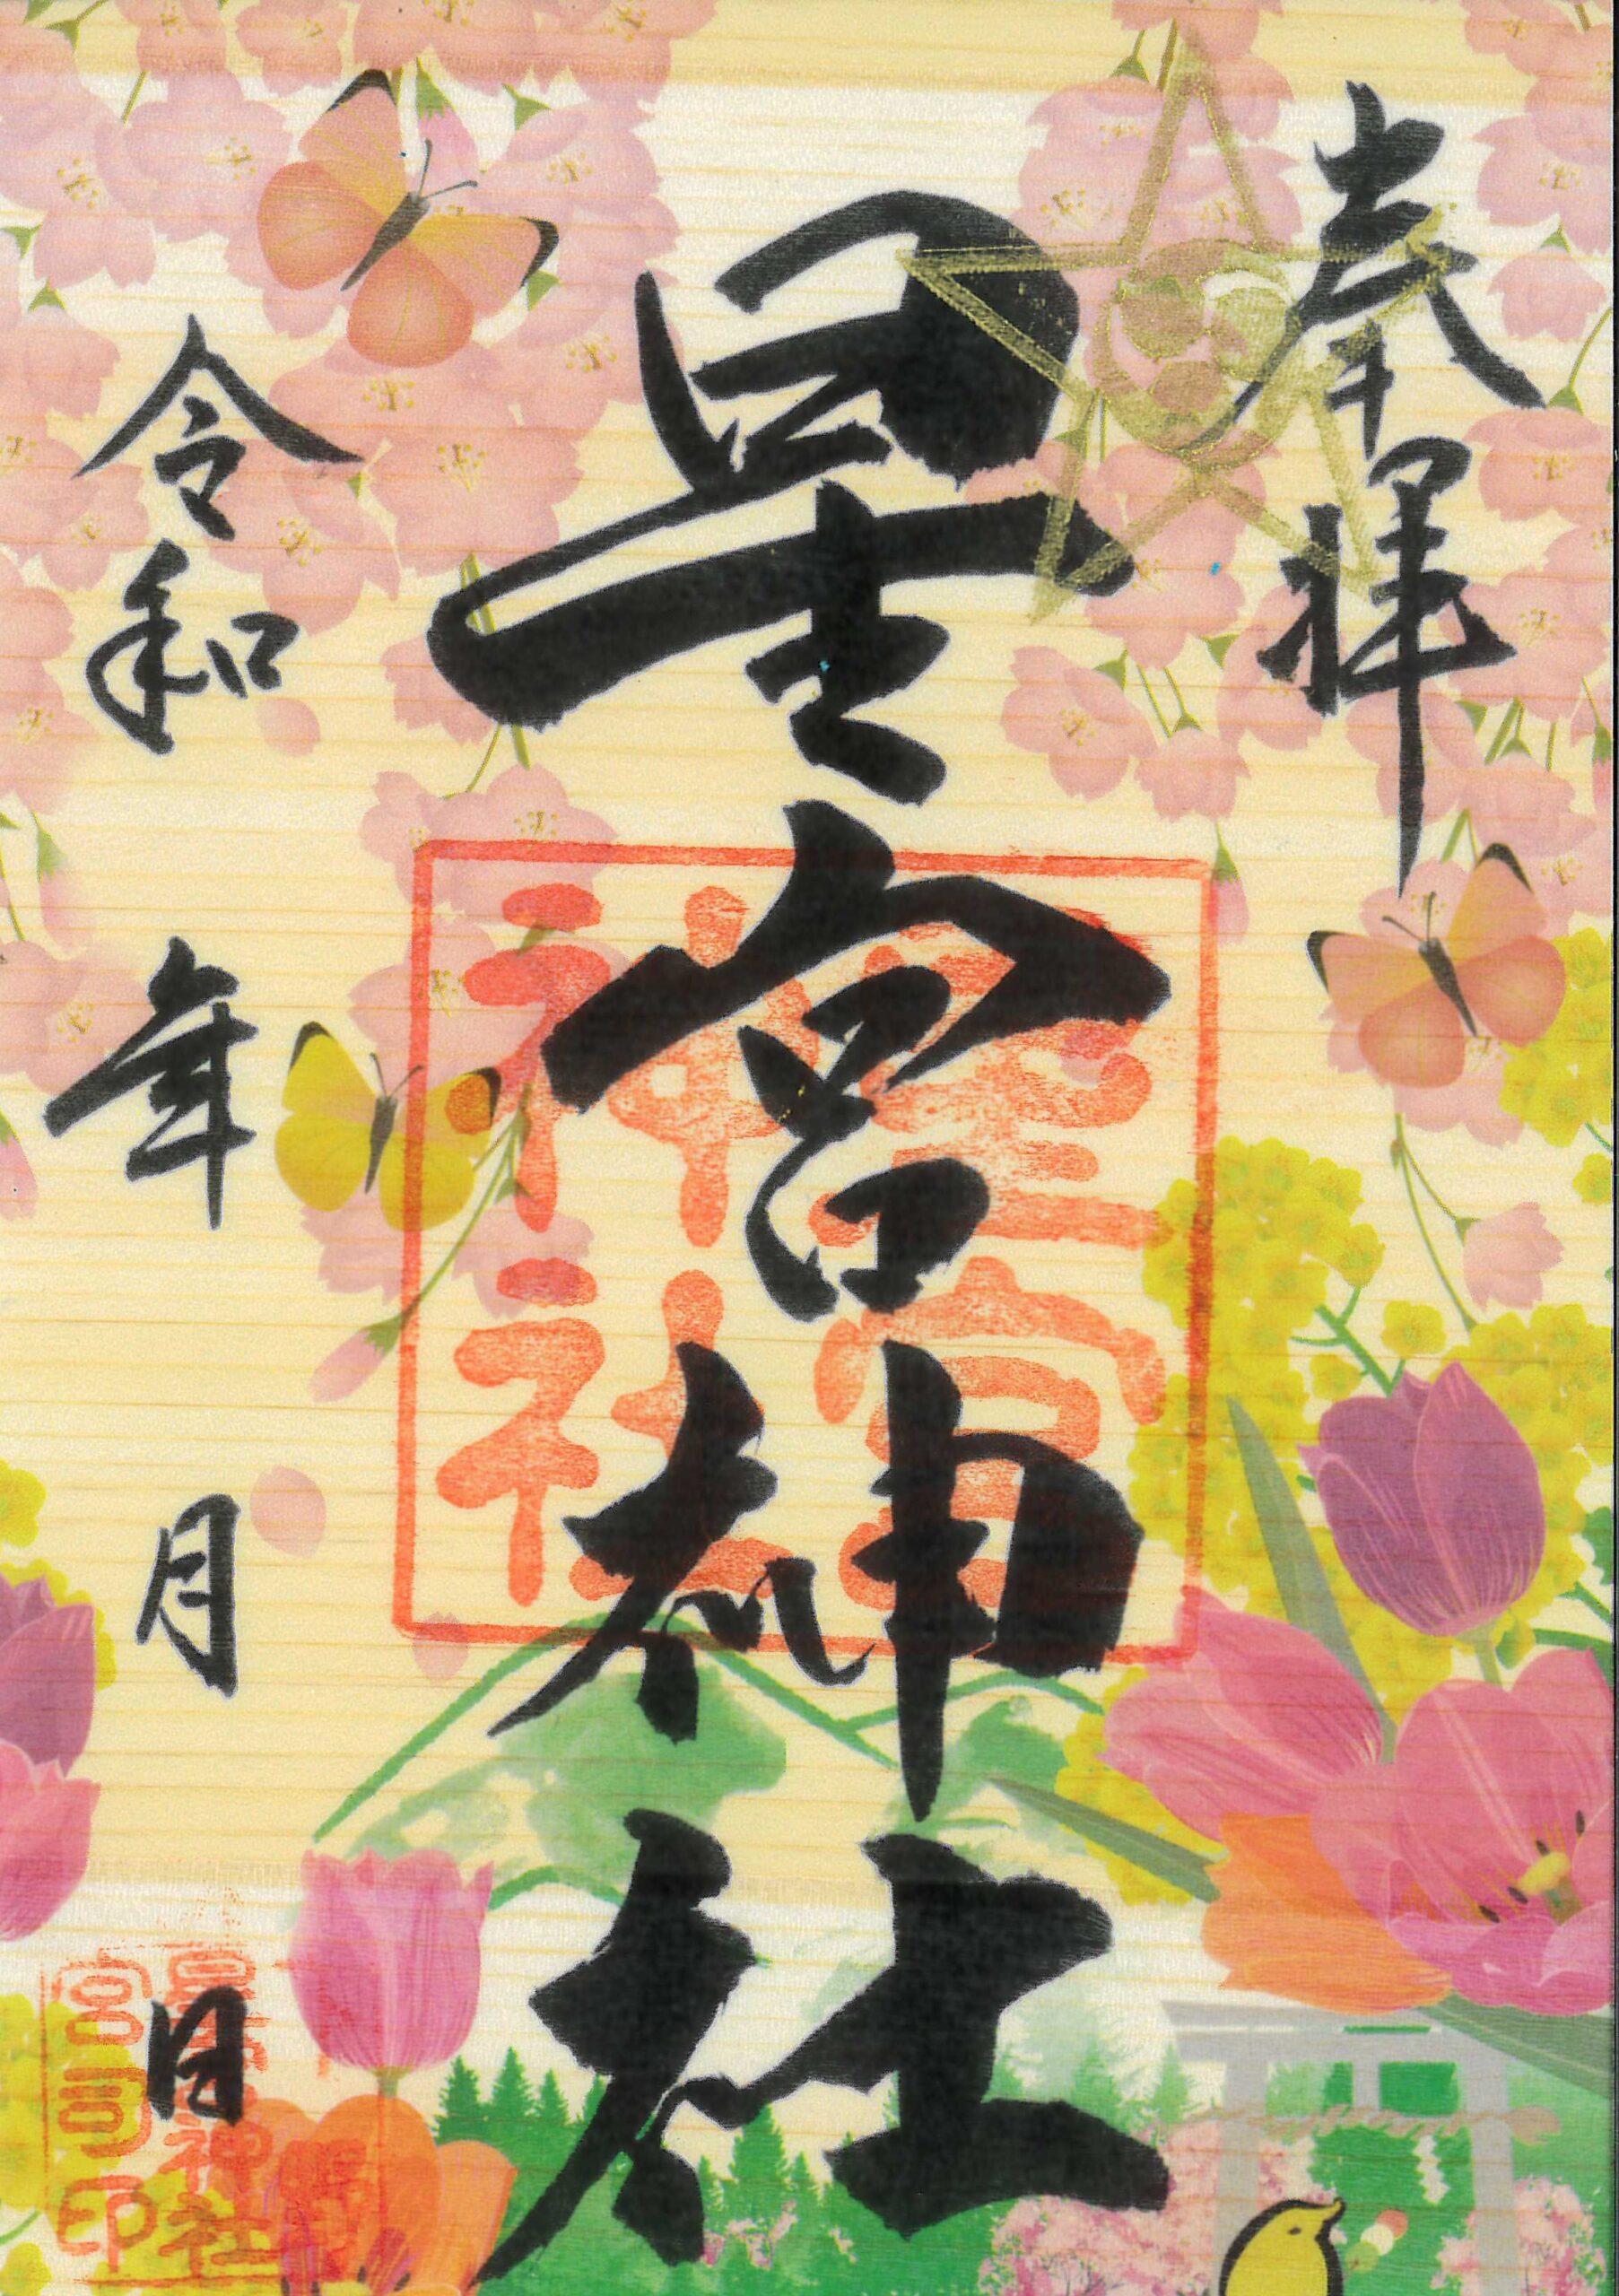 奉拝
星宮神社
星宮
神社
令和 年 月 日
宮司印